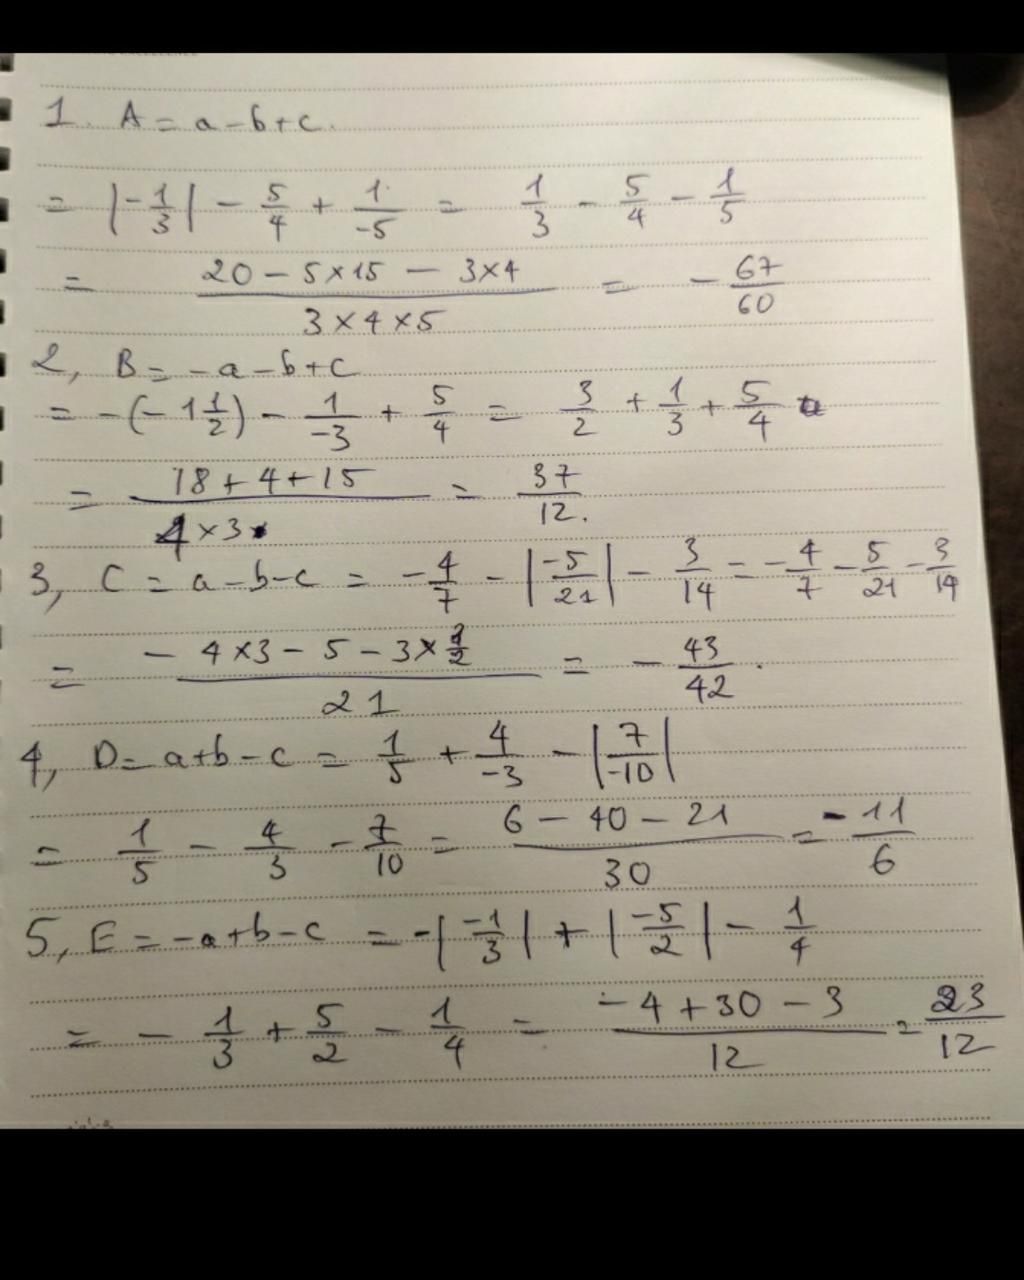 1. A = a - b + c.
= |-1/3| - 5/4 + 1/-5 = 1/3 - 5/4 - 1/5
= (20 - 5×15 - 3×4)/(3×4×5) = - 67/60
2, B = - a - b + c
= -(- 1 1/2) - 1/-3 + 5/4 = 3/2 + 1/3 + 5/4
= (18 + 4 + 15)/(4×3) = 37/12.
3, C = a - b - c = - 4/7 - |-5/21| - 3/14 = - 4/7 - 5/21 - 3/14
= (- 4×3 - 5 - 3×3/2)/21 = - 43/42.
4, D = a + b - c = 1/5 + 4/-3 - |7/-10|
= 1/5 - 4/3 - 7/10 = (6 - 40 - 21)/30 = - 11/6
5, E = - a + b - c = - |-1/3| + |-5/2| - 1/4
= - 1/3 + 5/2 - 1/4 = (- 4 + 30 - 3)/12 = 23/12